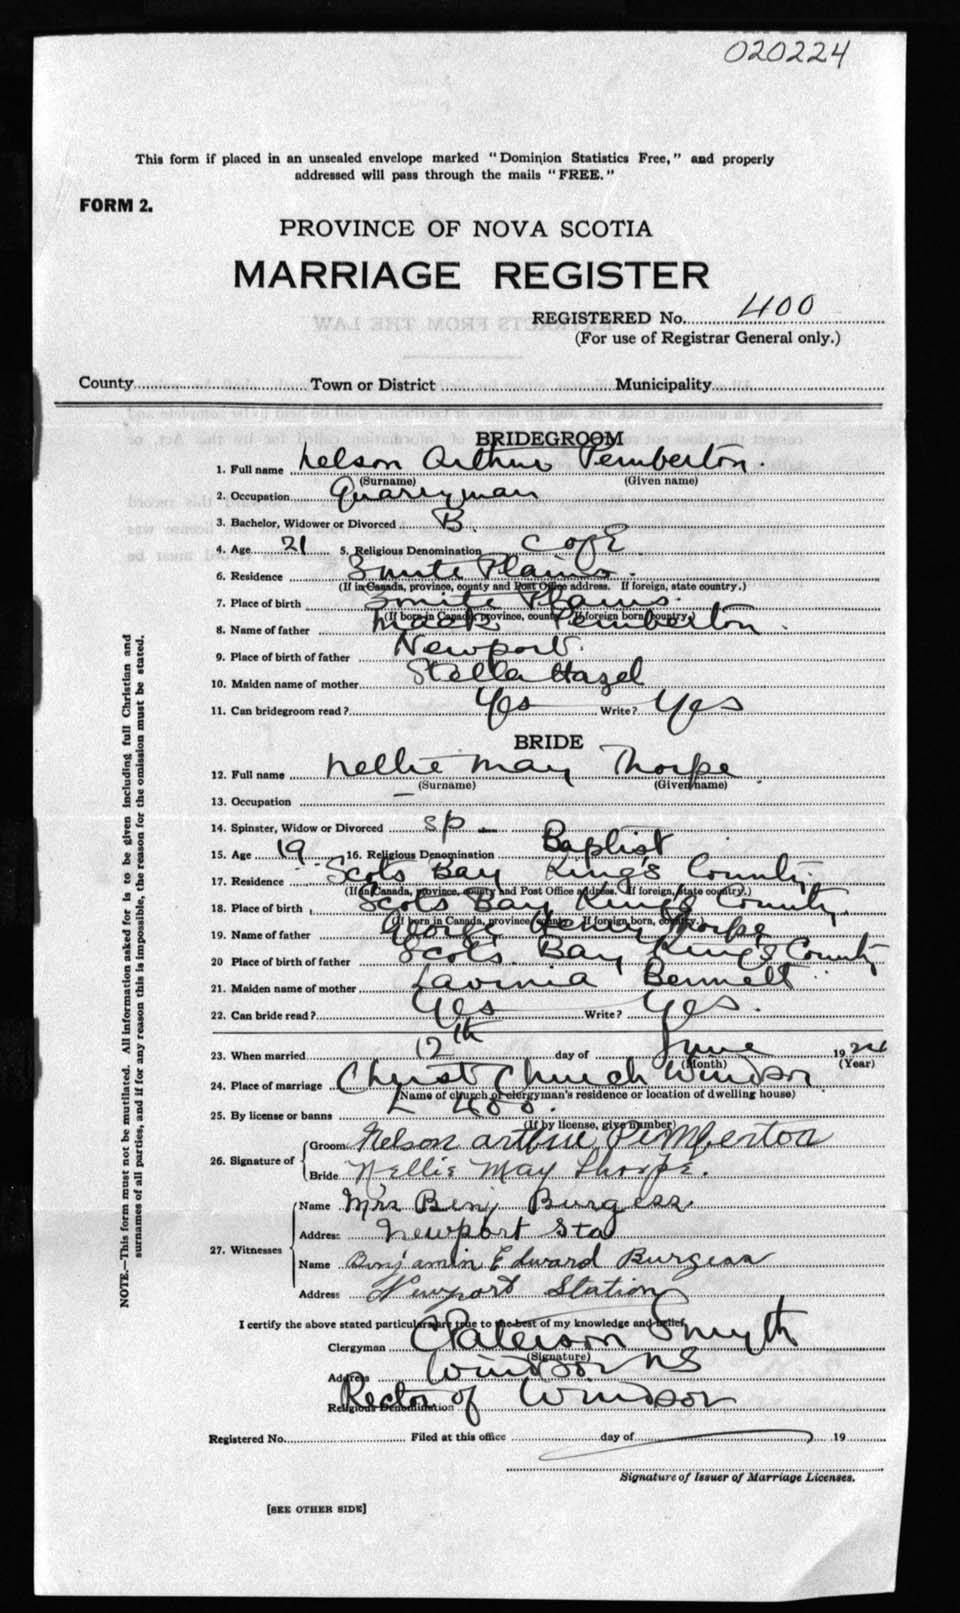 020224
This form if placed in an unsealed envelope marked "Dominion Statistics Free," and properly
addressed will pass through the mails "FREE."
FORM 2.
PROVINCE OF NOVA SCOTIA
MARRIAGE REGISTER
REGISTERED No. 400
(For use of Registrar General only.)
County Town or District Municipality
BRIDEGROOM
1. Full name Nelson Arthur Pemberton.
(Surname) (Given name)
2. Occupation Quarryman
3. Bachelor, Widower or Divorced B.
4. Age 21 5. Religious Denomination C of E
6. Residence 3 mile Plains.
(If in Canada, province, county and Post Office address. If foreign, state country.)
7. Place of birth 3 mile Plains.
(If born in Canada, province, county. If foreign born, country.)
8. Name of father Mack Pemberton.
9. Place of birth of father Newport.
10. Maiden name of mother Stella Hazel
11. Can bridegroom read? Yes Write? Yes
BRIDE
12. Full name Nellie May Thorpe.
(Surname) (Given name)
13. Occupation —
14. Spinster, Widow or Divorced sp —
15. Age 19. 16. Religious Denomination Baptist
17. Residence Scots Bay King's County.
(If in Canada, province, county and Post Office address. If foreign, state country.)
18. Place of birth Scots Bay King's County.
(If born in Canada, province, county. If foreign born, country.)
19. Name of father George Henry Thorpe
20 Place of birth of father Scots Bay King's County
21. Maiden name of mother Lavinia Bennett
22. Can bride read? Yes Write? Yes.
23. When married 12th day of June 1924
(Month) (Year)
24. Place of marriage Christ Church Windsor.
(Name of church or clergyman's residence or location of dwelling house)
25. By license or banns L 400.
(If by license, give number)
26. Signature of Groom Nelson arthur Pemberton
Bride Nellie May Thorpe.
27. Witnesses Name Mrs Benj Burgess
Address Newport Sta
Name Benjamin Edward Burgess
Address Newport Station
I certify the above stated particulars are true to the best of my knowledge and belief.
Clergyman Paterson Smyth
(Signature)
Address Windsor NS
Religious Denomination Rector of Windsor
Registered No. Filed at this office day of 19
Signature of Issuer of Marriage Licenses.
[SEE OTHER SIDE]
NOTE.—This form must not be mutilated. All information asked for is to be given including full Christian and
surnames of all parties, and if for any reason this is impossible, the reason for the omission must be stated.